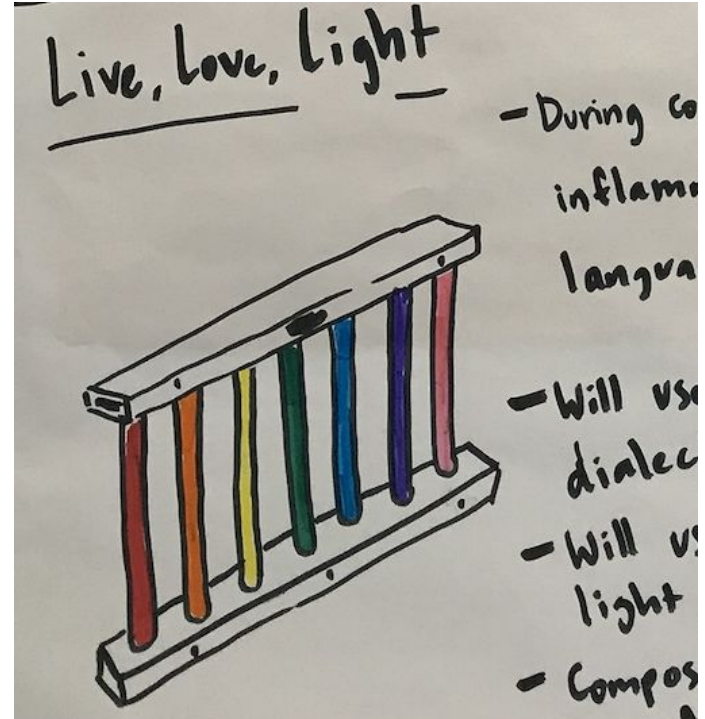 Live, Love, Light
- During co
inflam
langua
- Will use
dialec
- Will us
light
- Compos